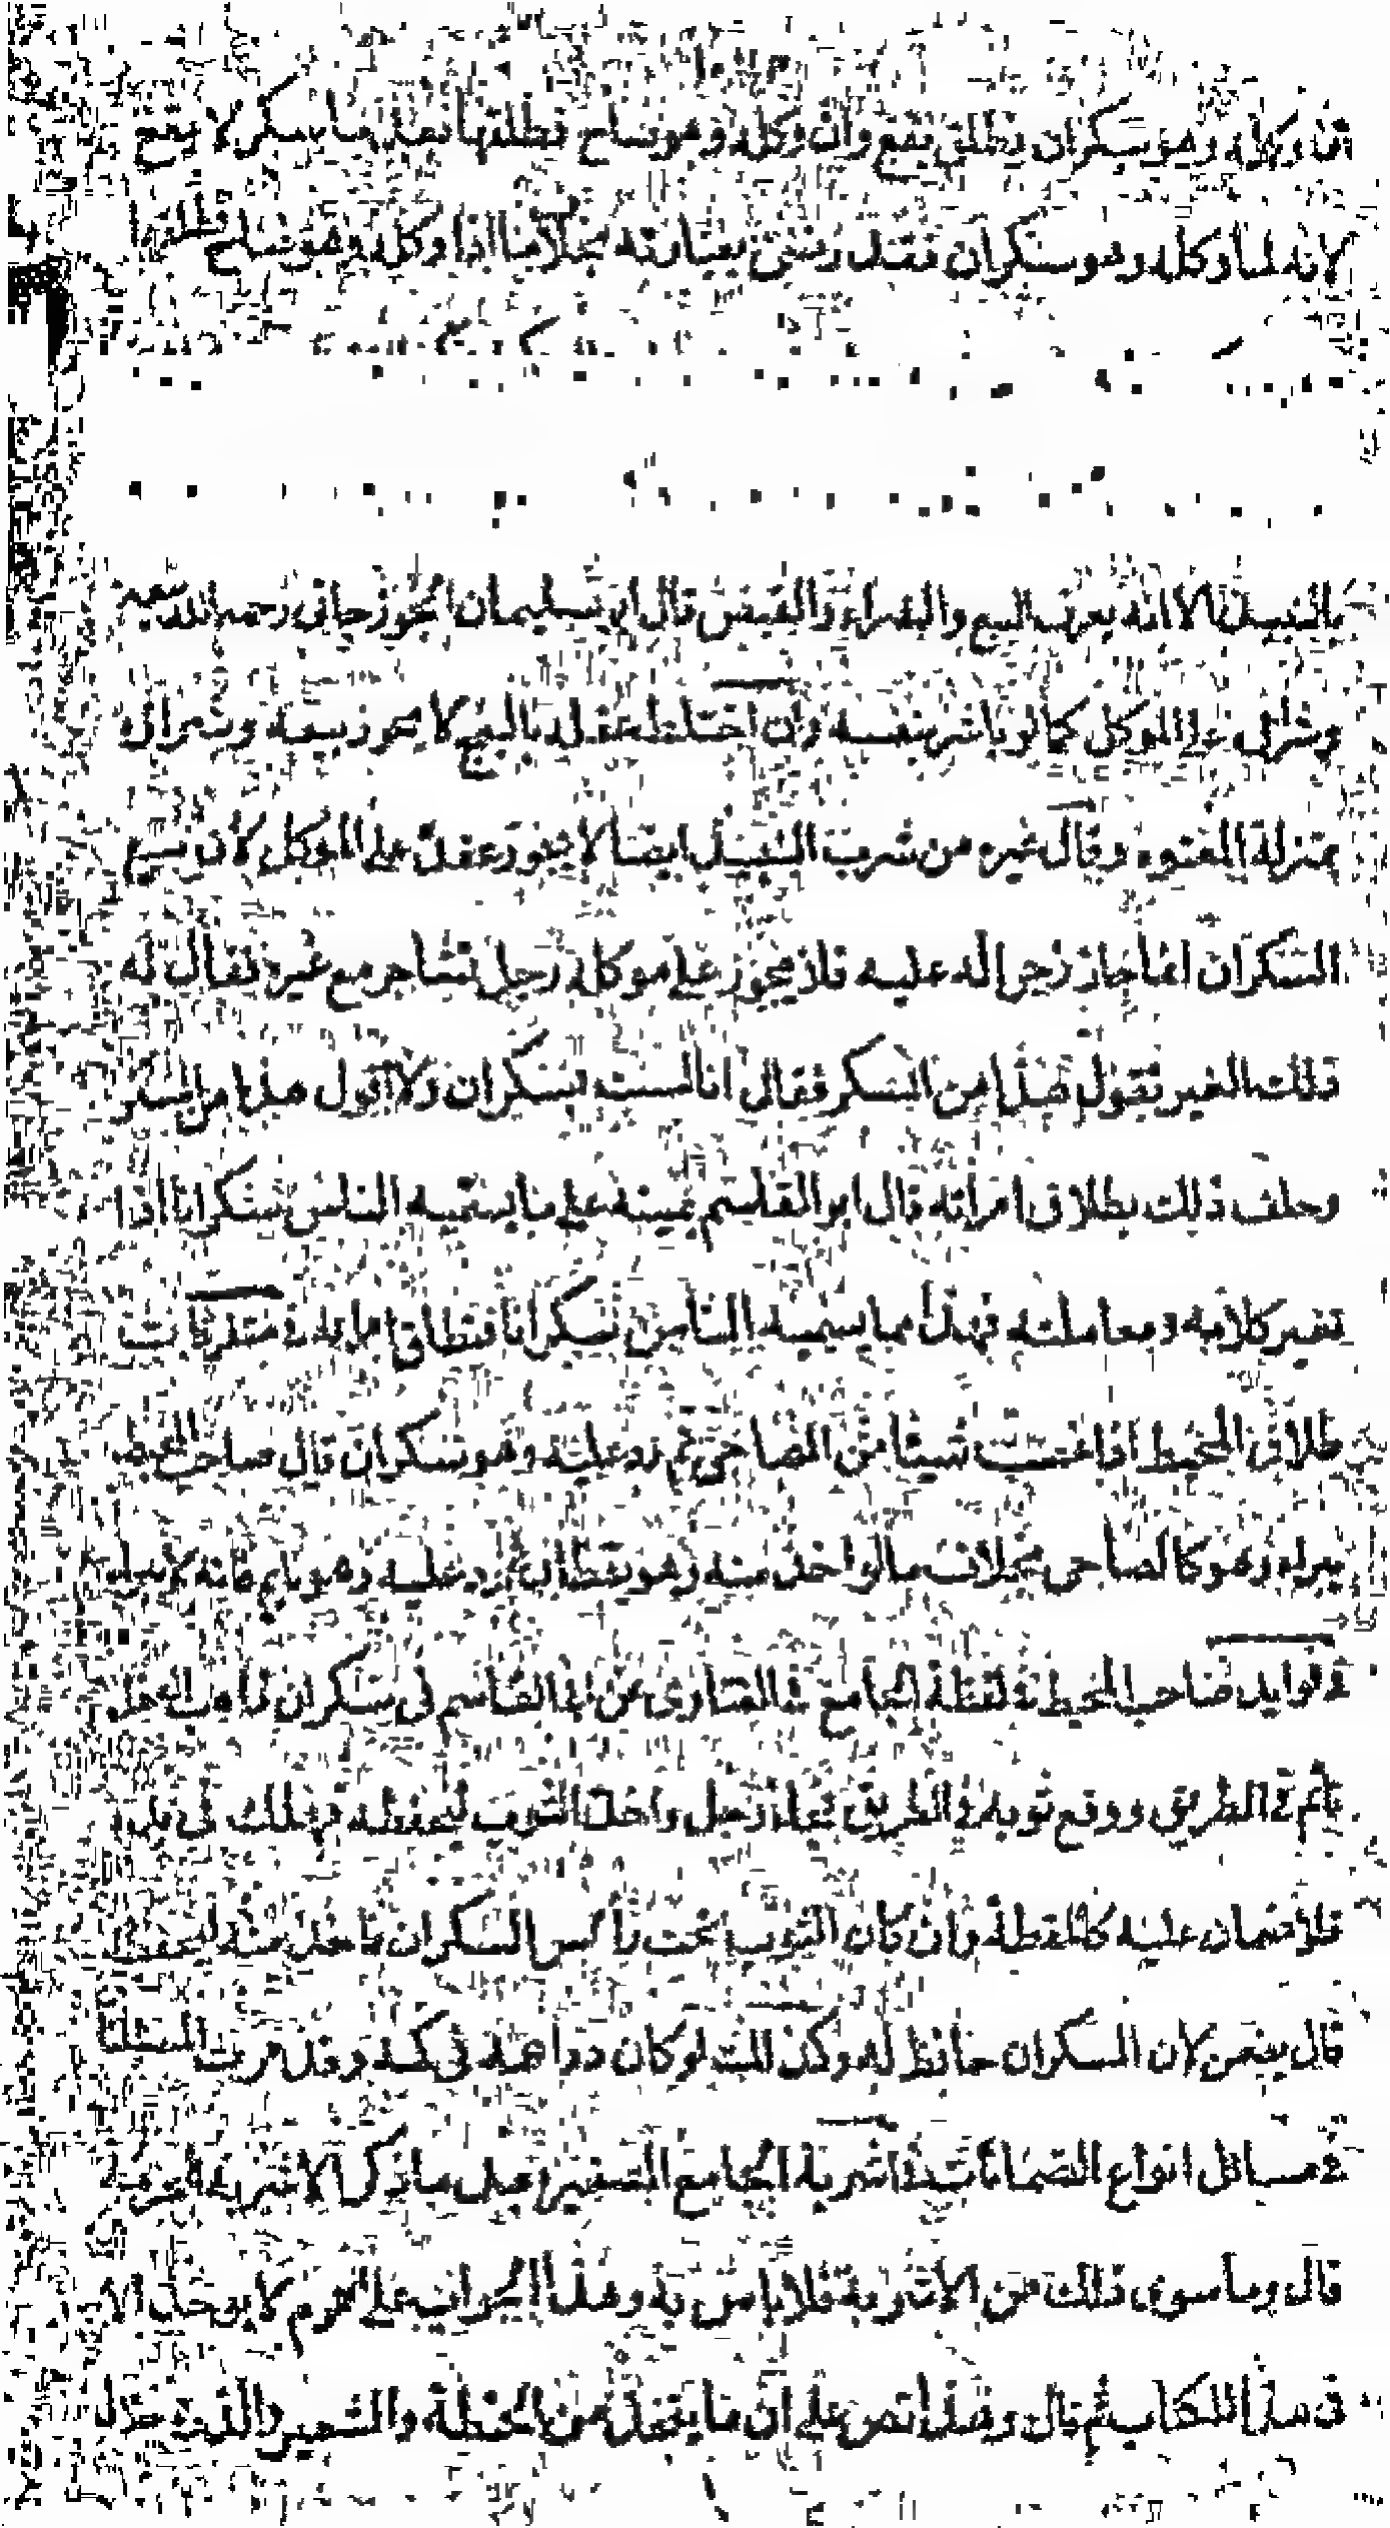 اذا وكله وهو سكران وطلق يقع وان وكله وهو صاح فطلقها بعد ما سكر لا يقع
لانه لما وكله وهو سكران فقد رضي بعبارته بخلاف ما اذا وكله وهو صاح فطلقها
بالنبيذ الا انه يعرف البيع والشراء والقبض قال ابو سليمان الجوزجاني رحمه الله بيعه
وشراؤه على الموكل كما لو باشر بنفسه وان اختلط عقله بالبنج لا يجوز بيعه وشراؤه
بمنزلة المعتوه وقال غيره من شرب النبيذ ايضا لا يجوز عقده على الموكل لان بيع
السكران انما جاز زجرا له عليه فلا يجوز على موكله رجل تشاجر مع غيره فقال له
ذلك الغير تقول هذا من السكر فقال انا لست بسكران ولا اقول هذا من السكر
وحلف ذلك بطلاق امراته قال ابو القاسم يمينه على ما يسميه الناس سكرانا اذا
تغير كلامه ومعاملته فهذا مما يسميه الناس سكرانا فتطلق امراته في متفرقات
طلاق المحيط اذا غصب شيئا من الصاحي ثم رده عليه وهو سكران قال صاحب المحيط
يبراء وهو كالصاحي بخلاف ما لو اخذ منه وهو يقظان ثم رد عليه وهو نائم فانه لا يبراء
في فوايد صاحب المحيط في لقطة الجامع في الفتاوى عن ابي القاسم في سكران ذاهب العقل
نائم في الطريق ووقع ثوبه في الطريق فجاء رجل واخذ الثوب ليحفظه فهلك في يده
فلا ضمان عليه كاللقطة وان كان الثوب تحت رأس السكران فاخذ منه ليحفظه
قال يضمن لان السكران حافظ له وكذلك لو كان دراهمه في كمه وقد مرت المسئلة
في مسائل انواع الضمانات في اشربة الجامع الصغير بعد ما ذكر الاشربة المحرمة
قال وما سوى ذلك من الاشربة فلا بأس به وهذا الجواب على العموم لا يوجد الا
في هذا الكتاب ثم قال وهذا نص على ان ما يتخذ من الحنطة والشعير والذرة حلال